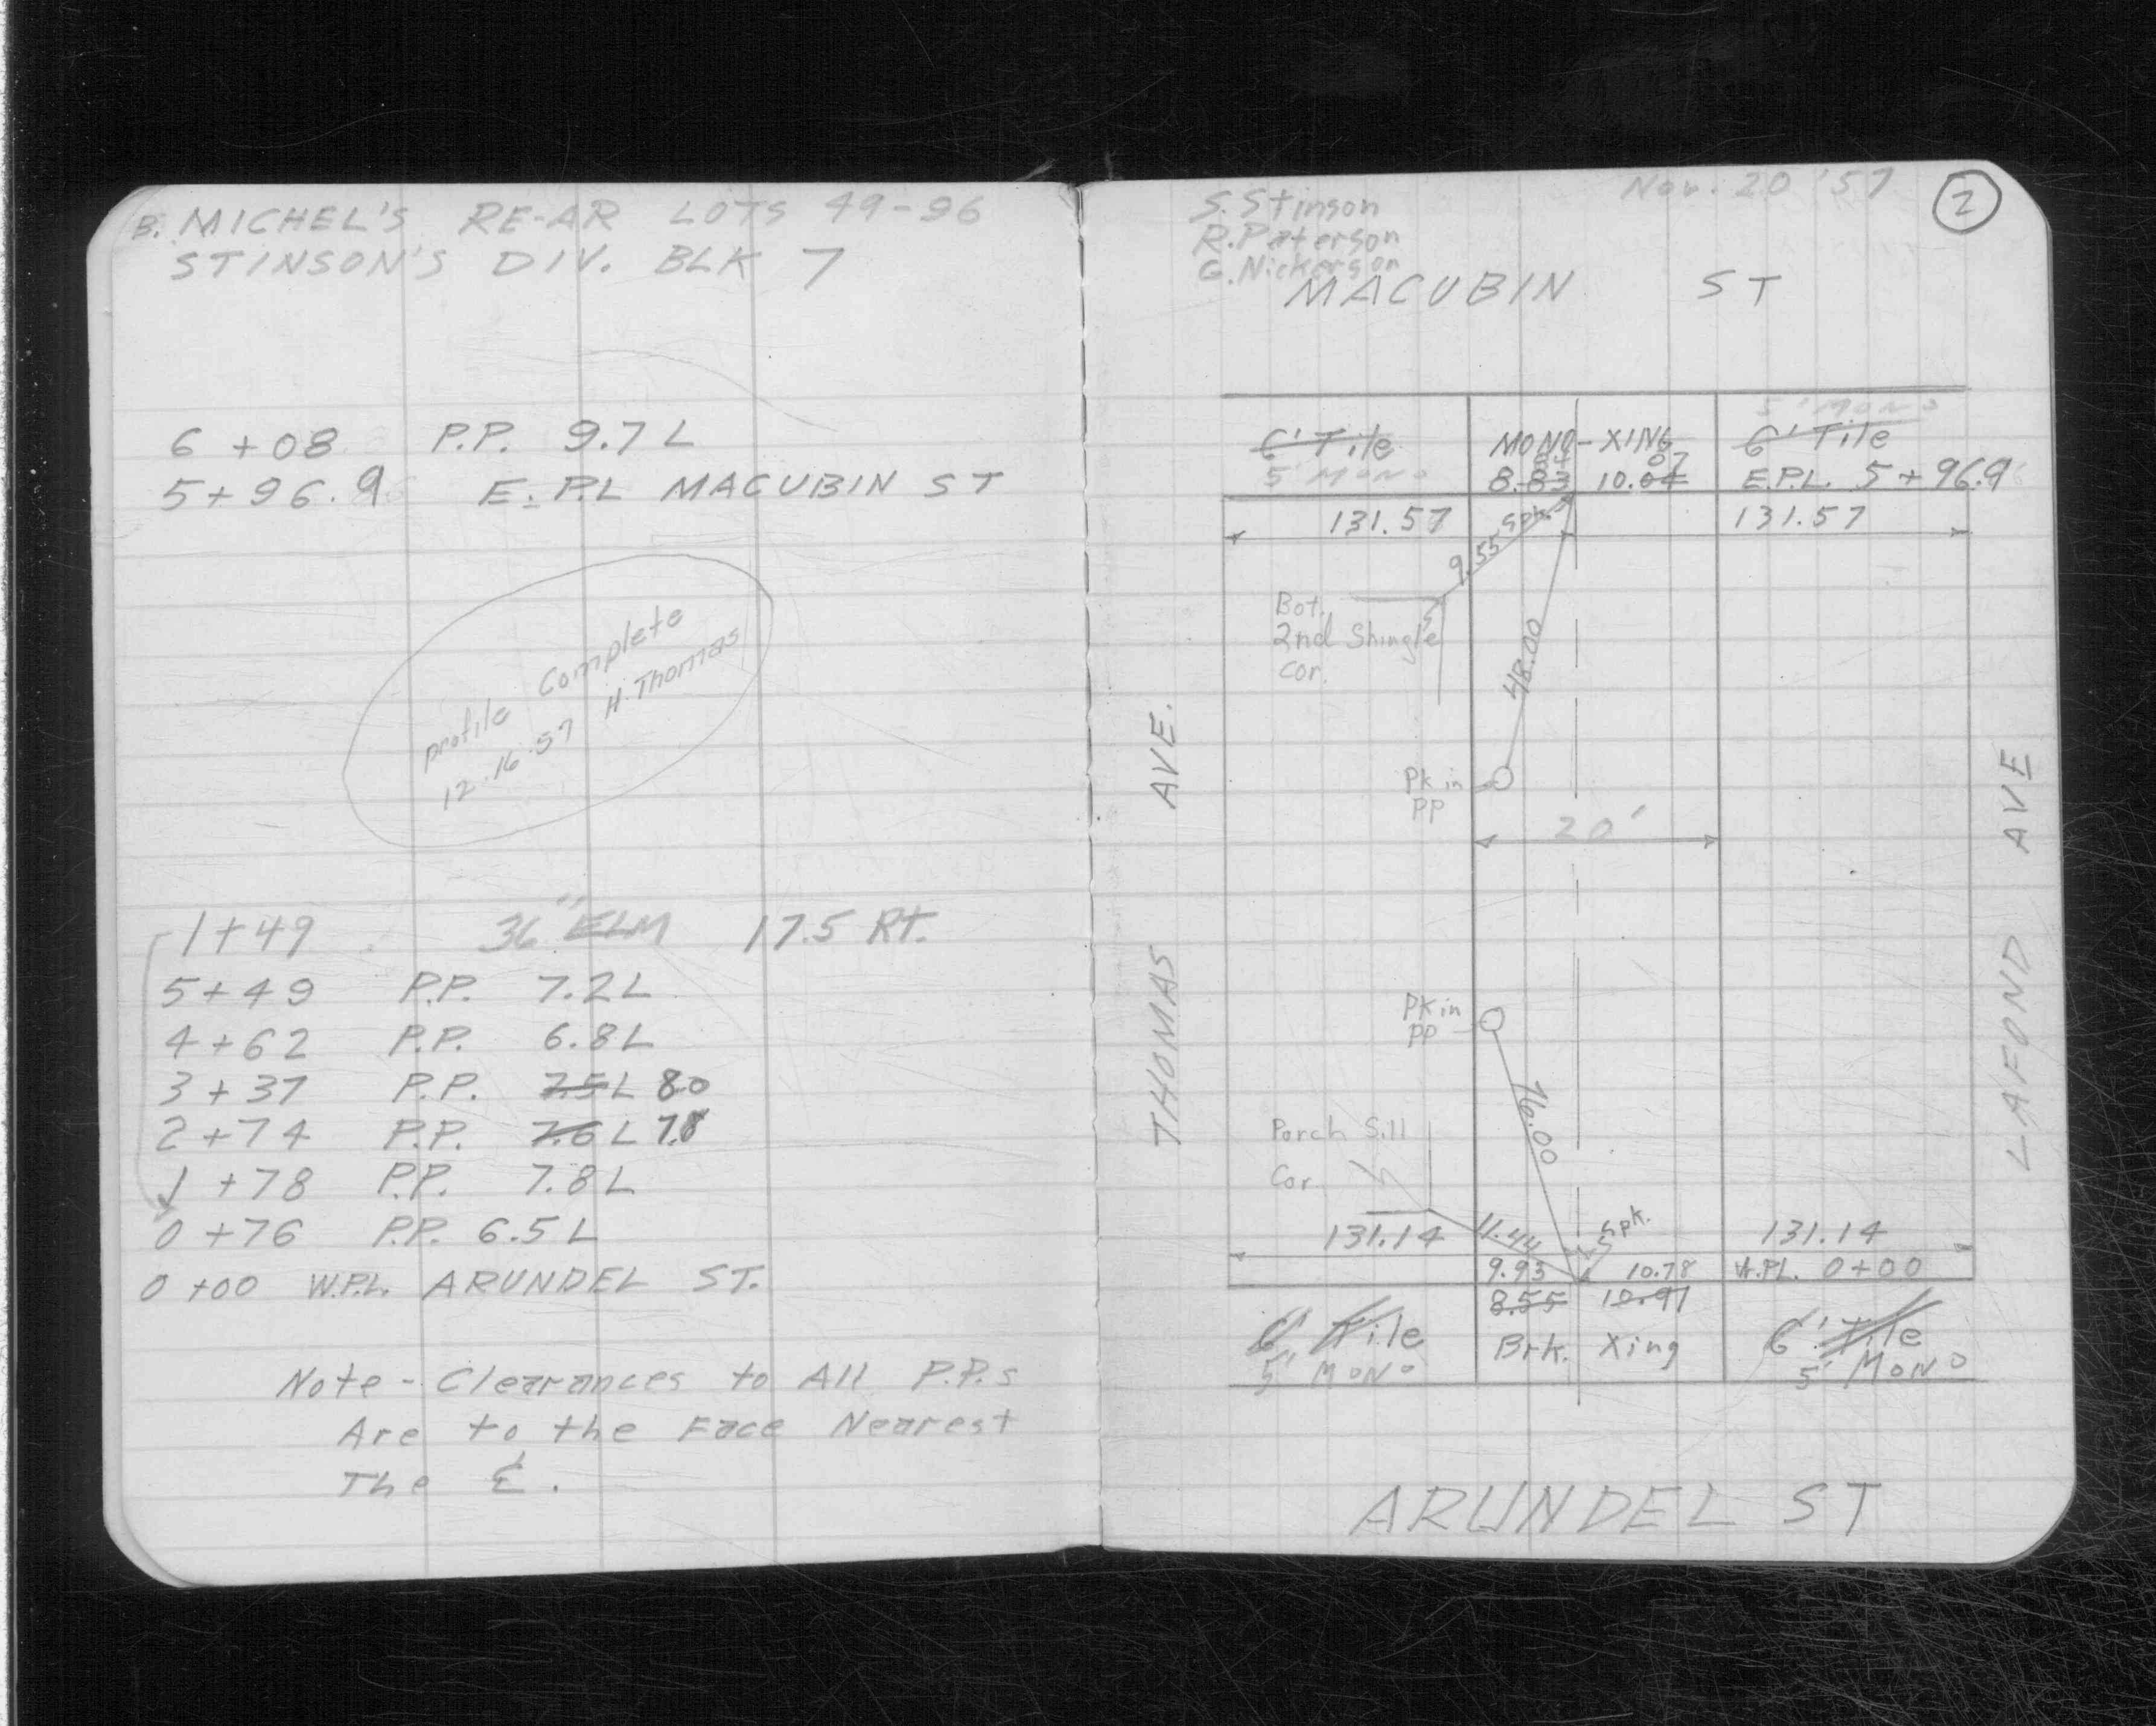 B. MICHEL'S RE-AR LOTS 49-96
STINSON'S DIV. BLK 7
6 +08 P.P. 9.7 L
5+96.9 E. P.L MACUBIN ST
profile Complete
12.16.57 H. Thomas
1+49 36" ELM 17.5 RT.
5+49 P.P. 7.2L
4+62 P.P. 6.8L
3+37 P.P. 7.5 L 8.0
2+74 P.P. 7.6 L 7.8
1+78 P.P. 7.8L
0+76 P.P. 6.5 L
0+00 W.P.L. ARUNDEL ST.
Note - Clearances to All P.P.s
Are to the Face Nearest
The ℄.
S. Stinson
R. Paterson
G. Nickerson
Nov. 20 '57
2
MACUBIN ST
5' MONO
6' Tile MONO-XING 6' Tile
5' MONO 8.83 10.04 07 E.P.L. 5+96.9
131.57 Spk. 131.57
9.55
Bot.
2nd Shingle
Cor.
48.00
Pk in
PP
20'
THOMAS AVE.
LAFOND AVE
Pk in
PP
76.00
Porch Sill
Cor.
131.14 11.44 Spk. 131.14
9.93 10.78 W.PL. 0+00
8.55 10.91
6' Tile Brk. Xing 6' Tile
5' MONO 5' MONO
ARUNDEL ST